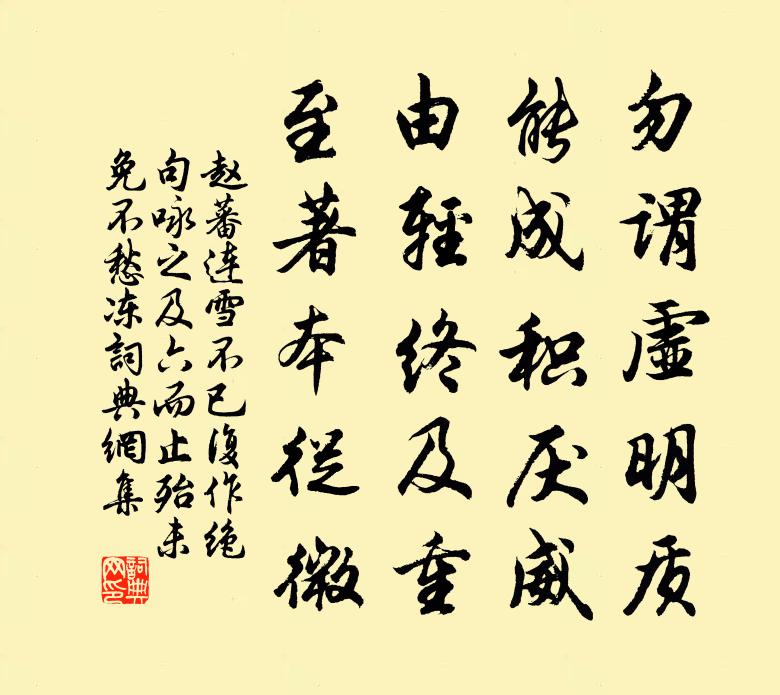 勿谓虚明质
能成积厌威
由轻终及重
至著本从微
赵蕃连雪不已復作绝
句咏之及六而止殆未
免不愁冻詞典網集
詞典
网印